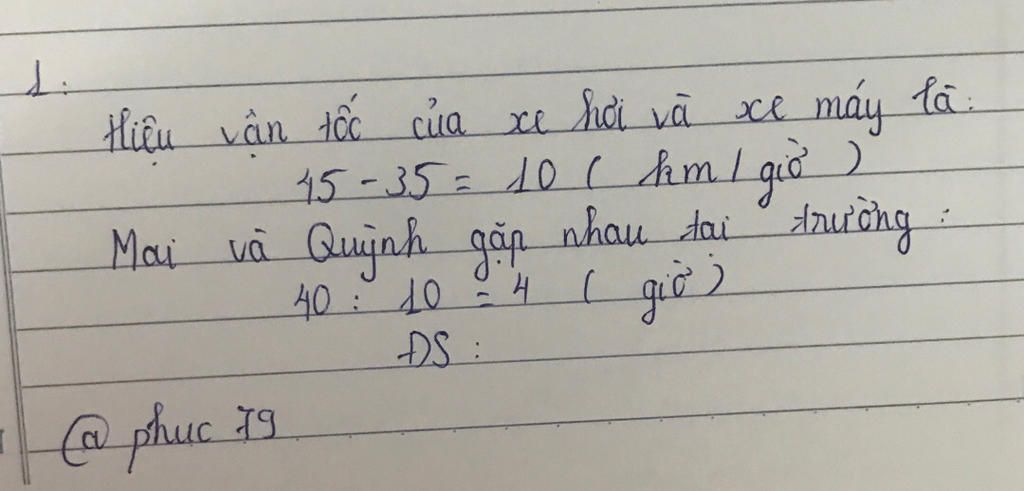 1:
Hiệu vận tốc của xe hơi và xe máy là:
45 - 35 = 10 ( km / giờ )
Mai và Quỳnh gặp nhau tại trường :
40 : 10 = 4 ( giờ )
ĐS :
@ phuc 79